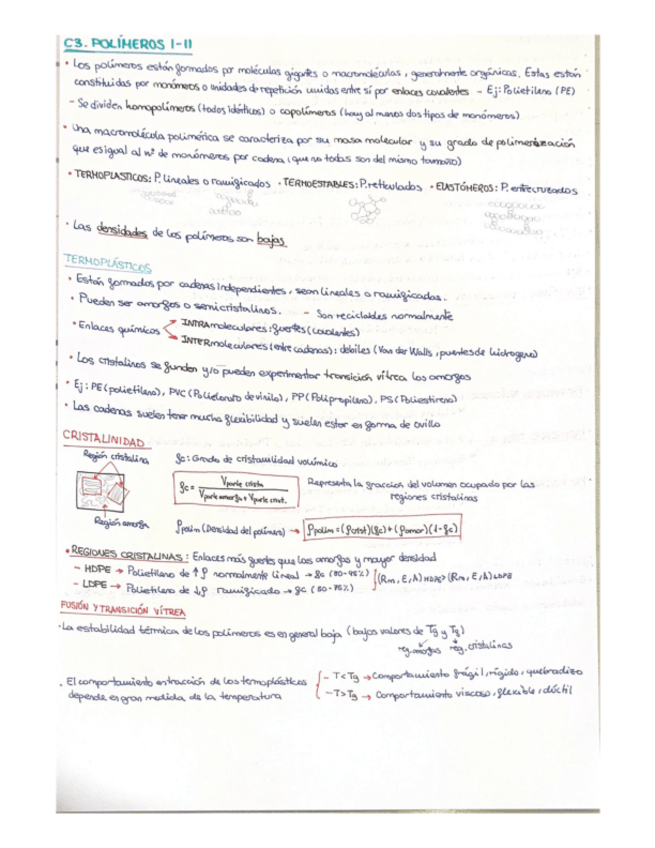 C3. POLÍMEROS I-II
• Los polímeros están formados por moléculas gigantes o macromoléculas, generalmente orgánicas. Estas están
constituidas por monómeros o unidades de repetición unidas entre sí por enlaces covalentes - Ej: Polietileno (PE)
- Se dividen homopolímeros (todos idénticos) o copolímeros (hay al menos dos tipos de monómeros)
• Una macromolécula polimérica se caracteriza por su masa molecular y su grado de polimerización
que es igual al nº de monómeros por cadena (que no todas son del mismo tamaño)
• TERMOPLASTICOS: P. lineales o ramificados • TERMOESTABLES: P. reticulados • ELASTÓMEROS: P. entrecruzados
• Las densidades de los polímeros son bajas
TERMOPLÁSTICOS
• Están formados por cadenas independientes, sean lineales o ramificadas.
• Pueden ser amorfos o semicristalinos. - Son reciclables normalmente
• Enlaces químicos
INTRAmoleculares: fuertes (covalentes)
INTERmoleculares (entre cadenas): débiles (Van der Walls, puentes de hidrogeno)
• Los cristalinos se funden y/o pueden experimentar transición vítrea los amorfos
• Ej: PE (polietileno), PVC (Policloruro de vinilo), PP (Polipropileno), PS (Poliestireno)
• Las cadenas suelen tener mucha flexibilidad y suelen estar en forma de ovillo
CRISTALINIDAD
Región cristalina
fc: Grado de cristalinidad volúmico
fc = Vparte crista / Vparte amorfa + Vparte crist.
Representa la fraccion del volumen ocupado por las
regiones cristalinas
Región amorfa
ρpolim (Densidad del polímero) → ρpolim = (ρcrist)(fc) + (ρamor)(1-fc)
• REGIONES CRISTALINAS: Enlaces más fuertes que los amorfos y mayor densidad
- HDPE → Polietileno de ↑ρ normalmente lineal → fc (80-95%)
- LDPE → Polietileno de ↓ρ ramificado → fc (50-75%)
(Rm, E, A) HDPE > (Rm, E, A) LDPE
FUSIÓN Y TRANSICIÓN VÍTREA
• La estabilidad térmica de los polímeros es en general baja (bajos valores de Tg y Tf)
reg. amorfas reg. cristalinas
• El comportamiento en tracción de los termoplásticos
depende en gran medida de la temperatura
- T < Tg → Comportamiento frágil, rígido, quebradizo
- T > Tg → Comportamiento viscoso, flexible, dúctil